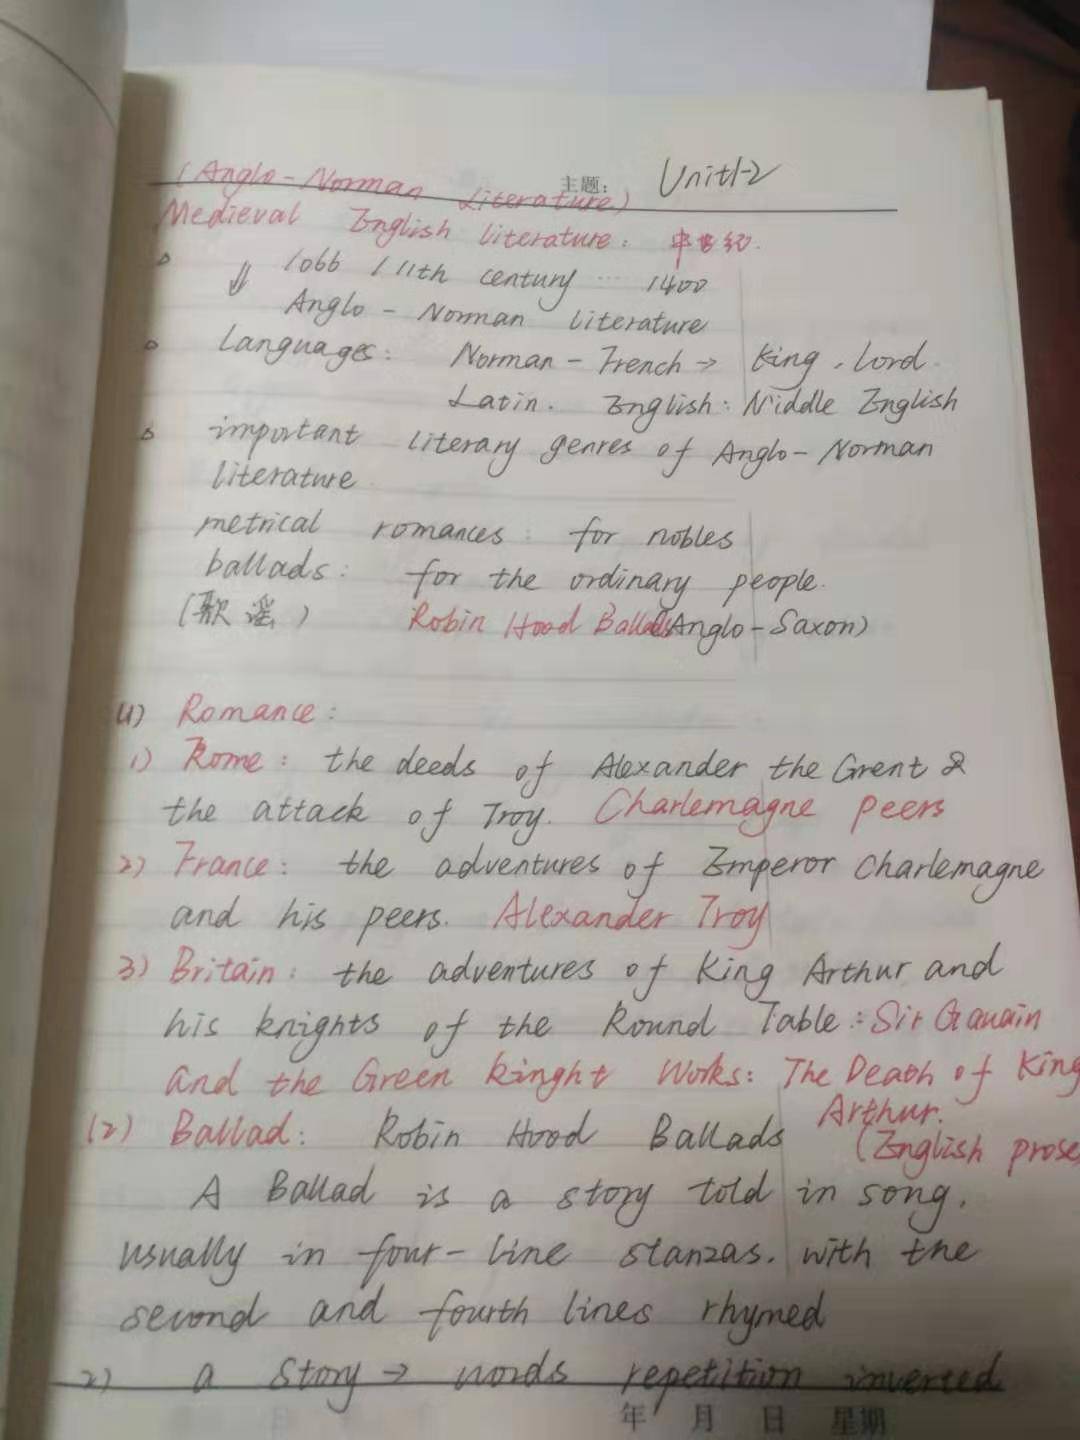 主题: Unit1-2
(Anglo-Norman Literature)
Medieval English literature: 中世纪.
1066 / 11th century ... 1400
⇓ Anglo-Norman literature
Languages: Norman-French → King, lord.
Latin. English: Middle English
important literary genres of Anglo-Norman
literature
metrical romances: for nobles
ballads: for the ordinary people.
(歌谣) Robin Hood Ballads (Anglo-Saxon)
(1) Romance:
1) Rome: the deeds of Alexander the Grent &
the attack of Troy. Charlemagne peers
2) France: the adventures of Emperor Charlemagne
and his peers. Alexander Troy
3) Britain: the adventures of King Arthur and
his knights of the Round Table: Sir Gauain
and the Green kinght Works: The Death of King
Arthur.
(2) Ballad: Robin Hood Ballads (English prose
A Ballad is a story told in song,
usually in four-line stanzas. with the
second and fourth lines rhymed
2) a story → words repetition inverted
年 月 日 星期